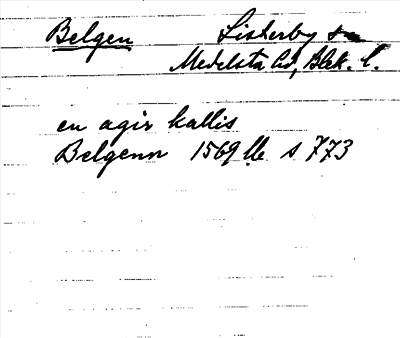 Belgen Listerby sn
Medelsta hd, Blek. l.
en agir kallis
Belgenn 1569 lb s 773